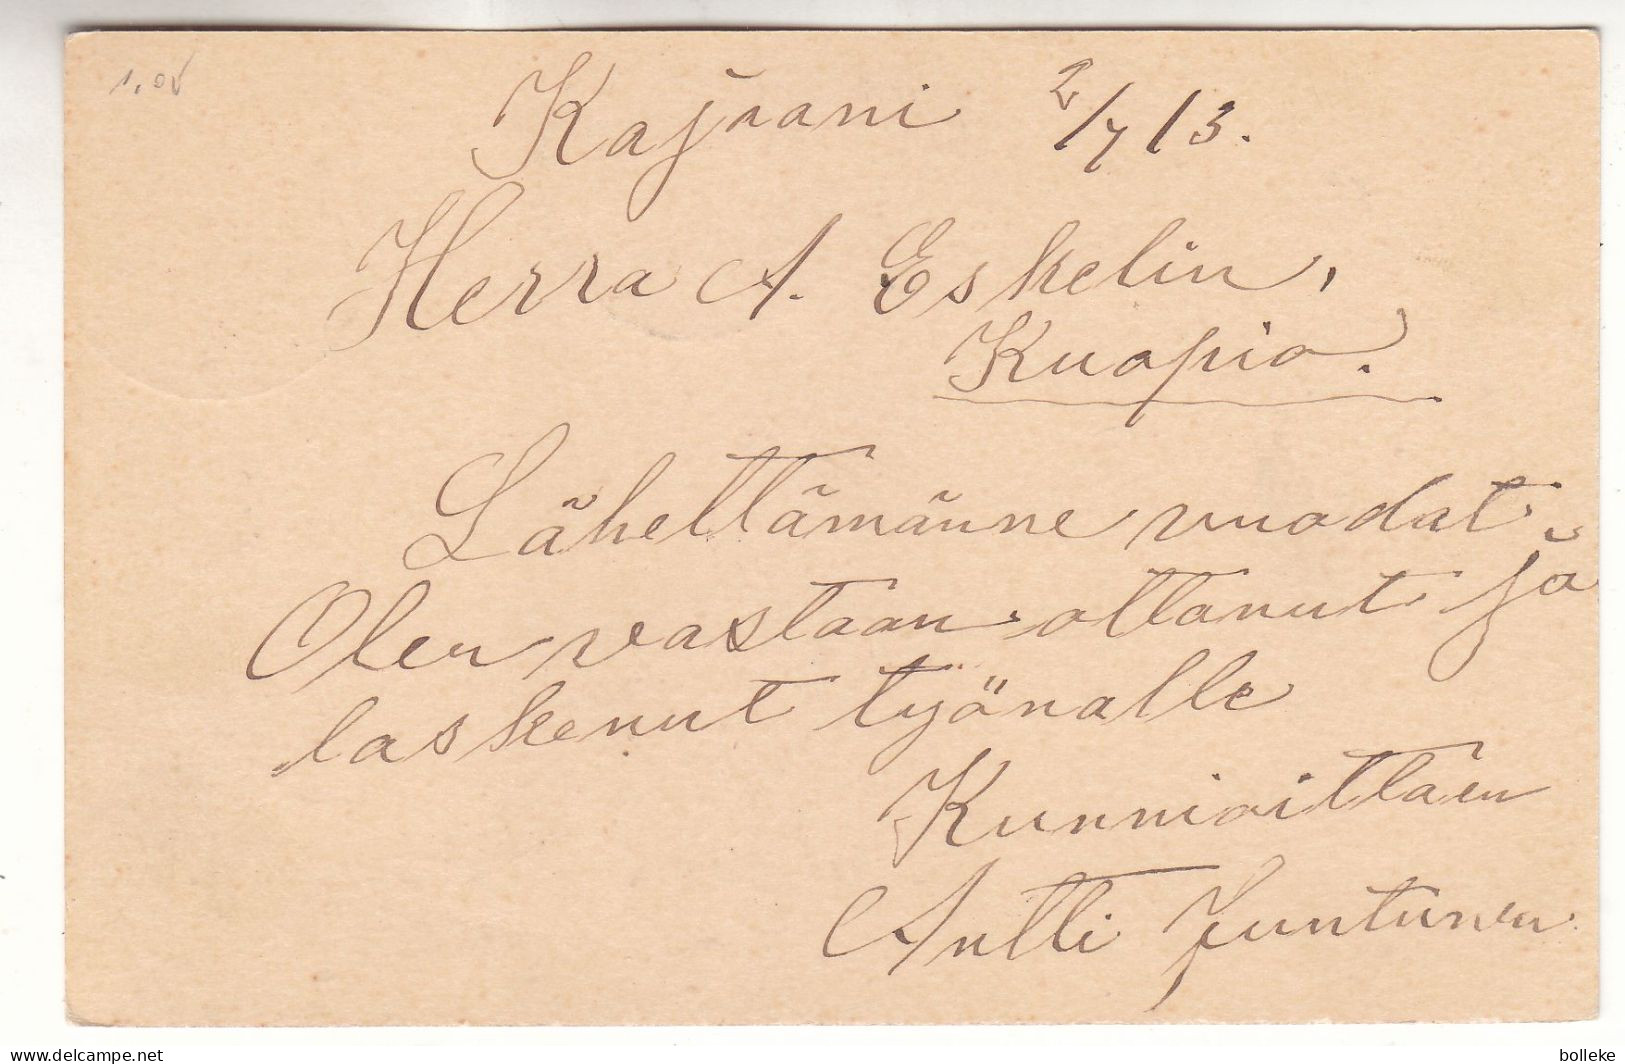 1,0V
Kajaani 2/7 13.
Herra A. Eskelin,
Kuopio.
Lähettämänne vuodat
Olen vastaan ottanut ja
laskenut työnalle
Kunnioittaen
Antti Juntunen
bolleke